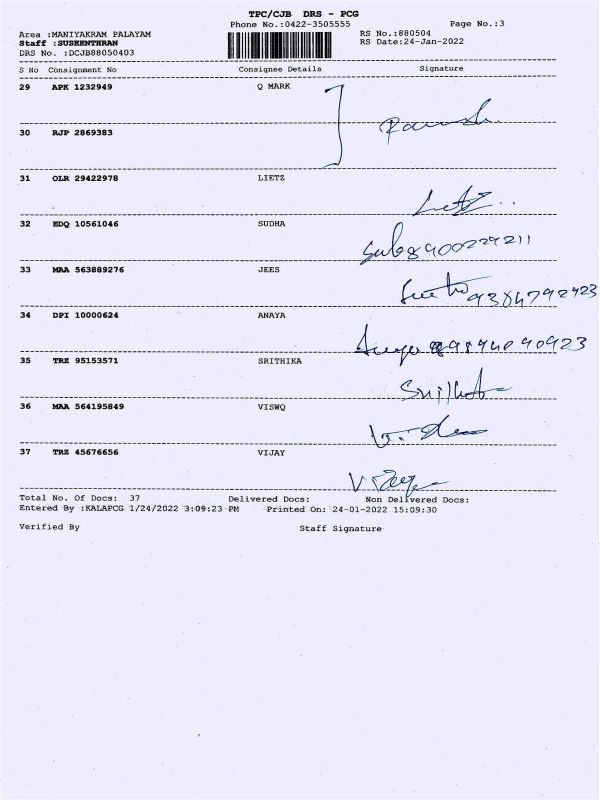 TPC/CJB DRS - PCG
Phone No.:0422-3505555 Page No.:3
Area :MANIYAKRAM PALAYAM RS No.:880504
Staff :SUSEENTHRAN RS Date:24-Jan-2022
DRS No. :DCJB88050403
S No Consignment No Consignee Details Signature
29 APK 1232949 Q MARK
30 RJP 2869383
31 OLR 29422978 LIETZ
32 EDQ 10561046 SUDHA
33 MAA 563889276 JEES
34 DPI 10000624 ANAYA
35 TRZ 95153571 SRITHIKA
36 MAA 564195849 VISWQ
37 TRZ 45676656 VIJAY
Total No. Of Docs: 37 Delivered Docs: Non Delivered Docs:
Entered By :KALAPCG 1/24/2022 3:09:23 PM Printed On: 24-01-2022 15:09:30
Verified By Staff Signature